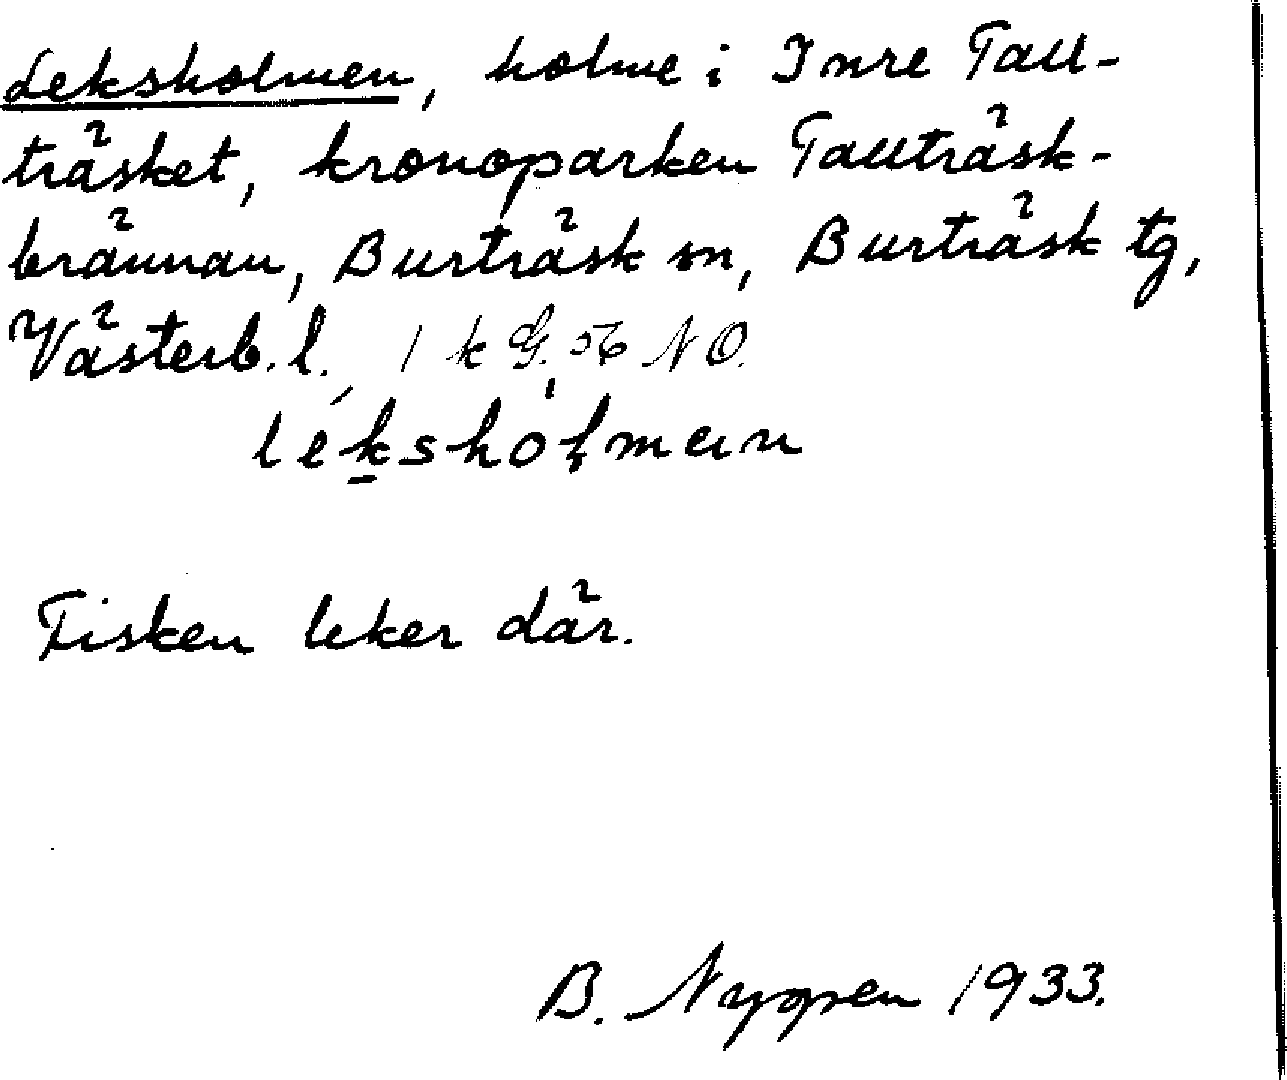 Leksholmen, holme i Inre Tall-
träsket, kronoparken Tallträsk-
brännan, Burträsk sn, Burträsk tg,
Västerb. l. 1 k G. 56 NO.
léksho̍lmen
Fisken leker där.
B. Nygren 1933.